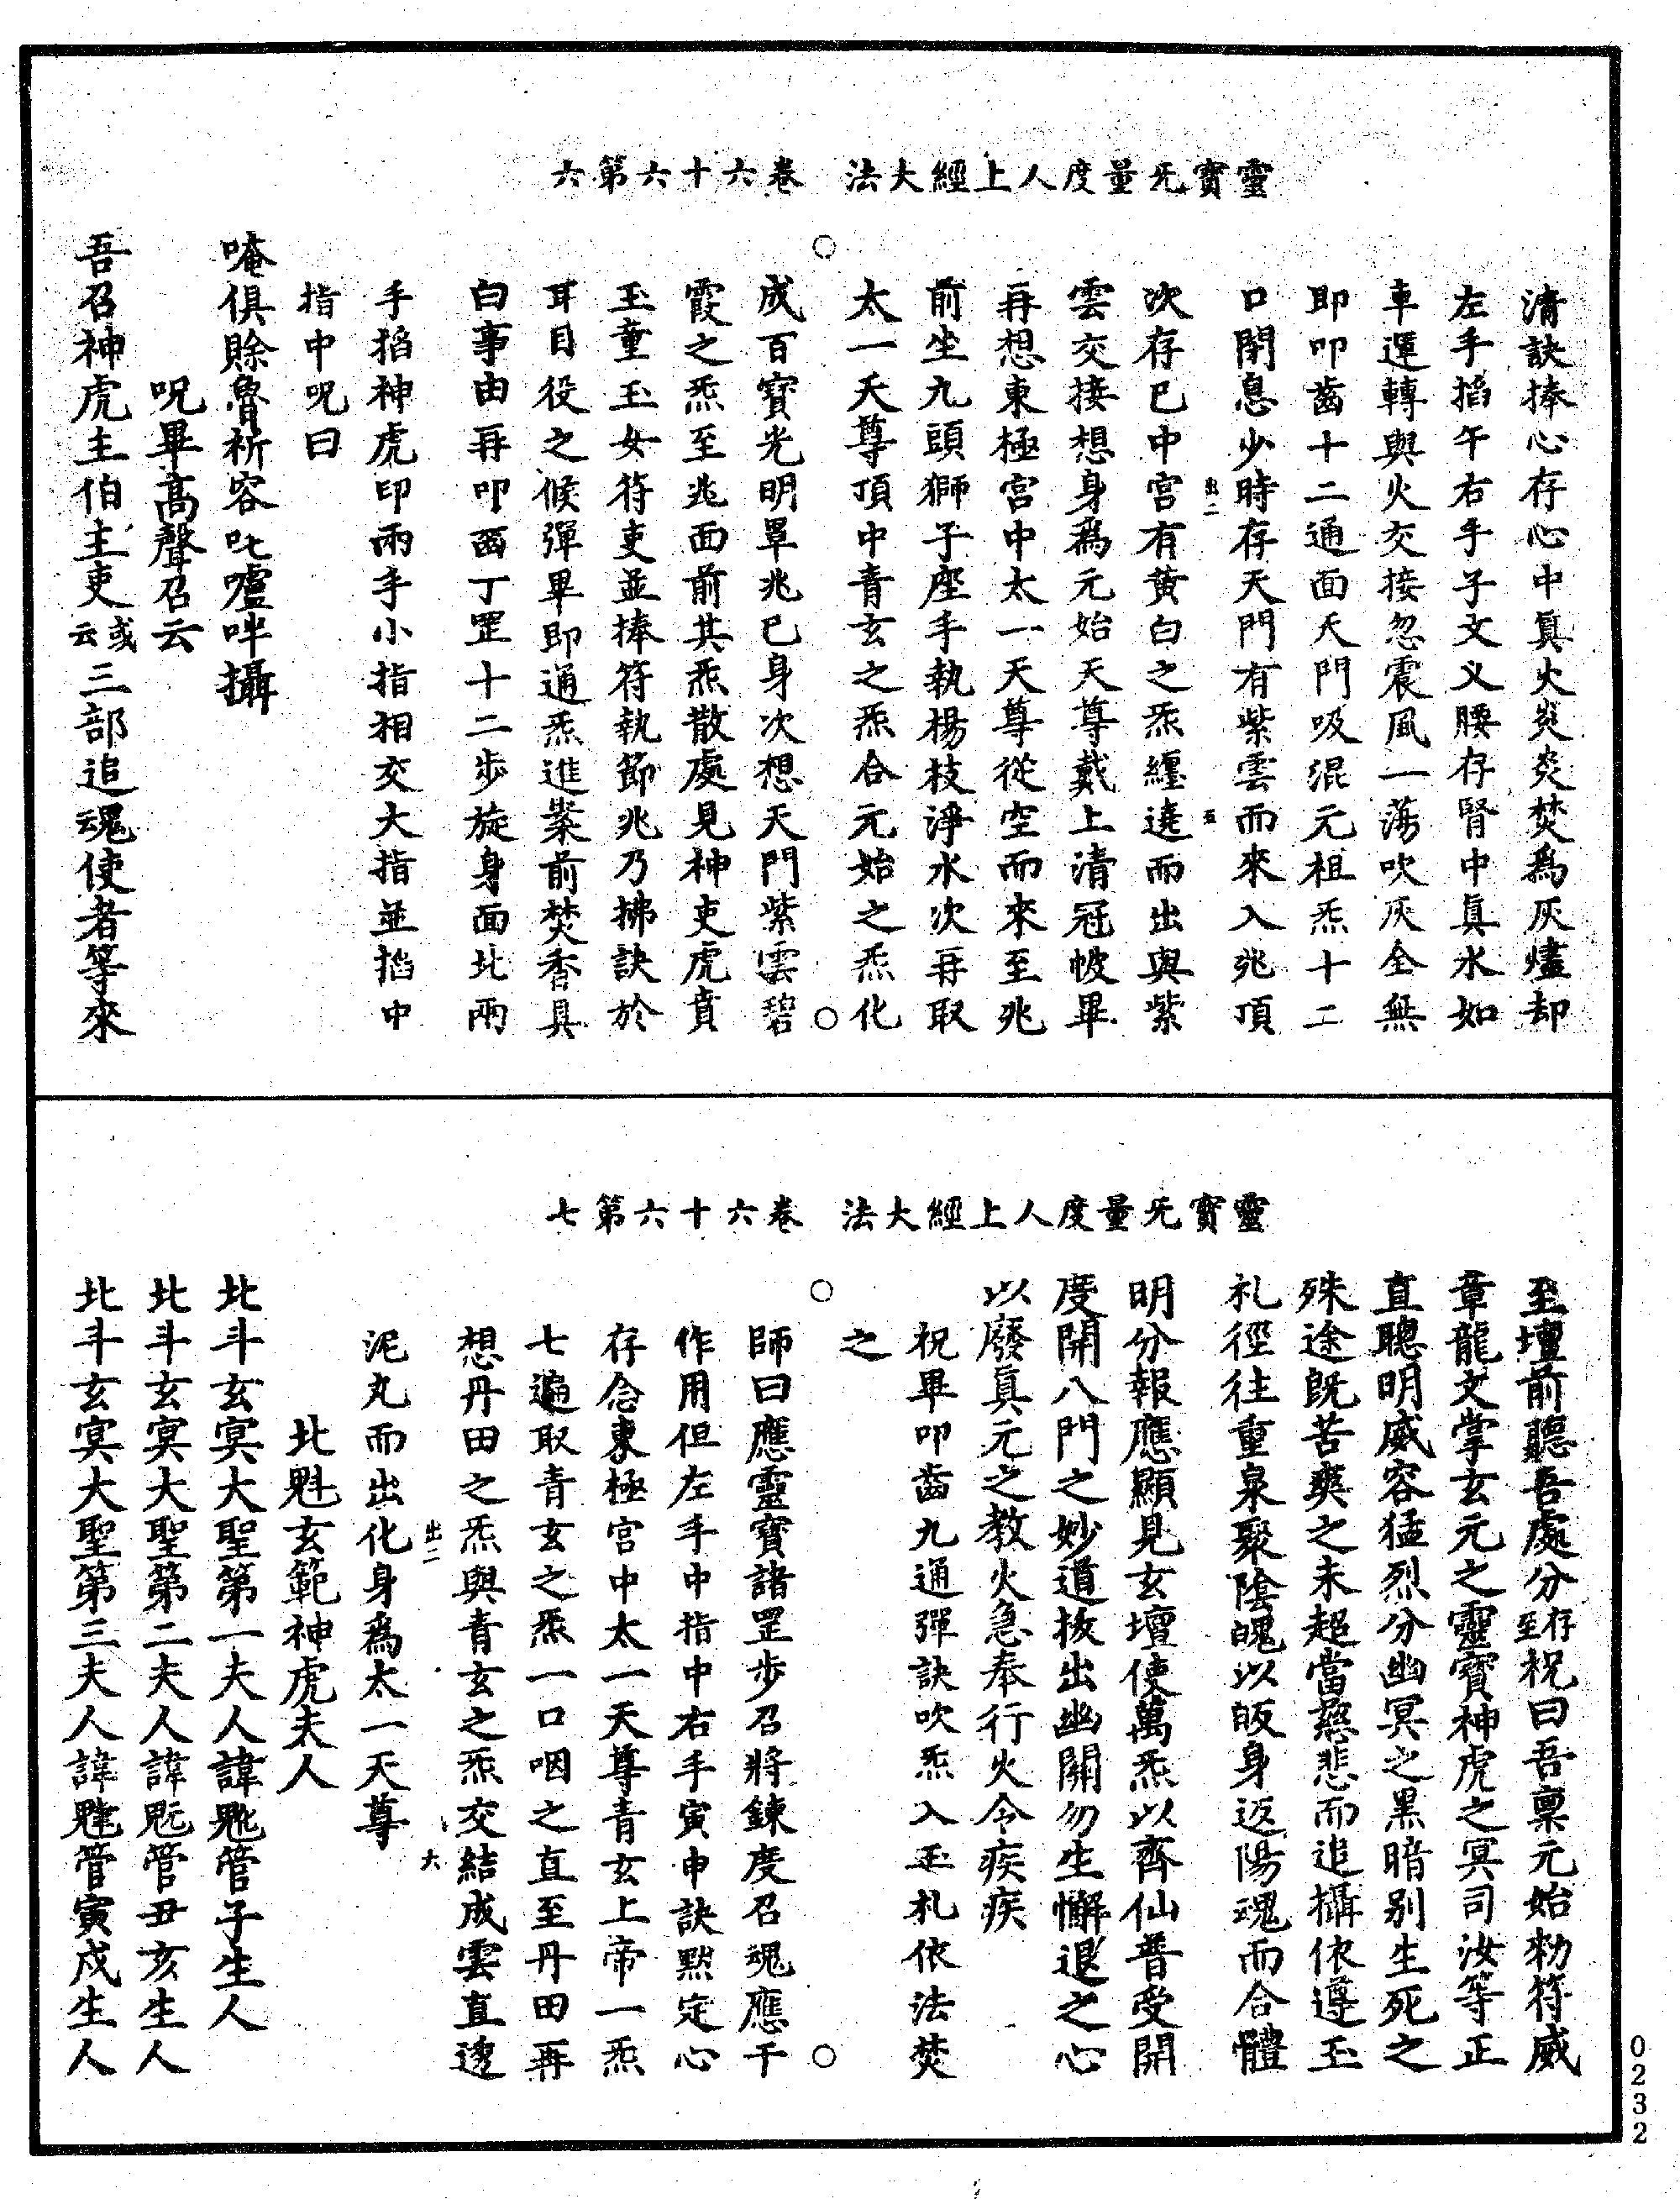 靈寶无量度人上經大法　卷六十六第六
清訣捧心存心中真火炎炎焚為灰燼却
左手掐午右手子文叉腰存腎中真水如
車運轉與火交接忽震風一蕩吹灰全無
即叩齒十二通面天門吸混元祖炁十二
口閉息少時存天門有紫雲而來入兆頂
出二　五
次存巳中宮有黃白之炁纏遶而出與紫
雲交接想身為元始天尊戴上清冠帔畢
再想東極宮中太一天尊從空而來至兆
前坐九頭獅子座手執楊枝淨水次再取
太一天尊頂中青玄之炁合元始之炁化
成百寶光明罩兆巳身次想天門紫雲碧
霞之炁至兆面前其炁散處見神吏虎賁
玉童玉女符吏並捧符執節兆乃拂訣於
耳目役之候彈畢即通炁進案前焚香具
白事由再叩齒丁罡十二步旋身面北兩
手掐神虎印兩手小指相交大指並掐中
指中呪曰
唵俱賒魯祈容吒嚧吽攝
呪畢高聲召云
吾召神虎主伯主吏或云三部追魂使者等來
靈寶无量度人上經大法　卷六十六第七
至壇前聽吾處分存至祝曰吾稟元始勑符威
章龍文掌玄元之靈寶神虎之冥司汝等正
直聰明威容猛烈分幽冥之黑暗别生死之
殊途旣苦爽之未超當慈悲而追攝依遵玉
札徑往重泉聚陰魄以皈身返陽魂而合體
明分報應顯見玄壇使萬炁以齊仙普受開
度開八門之妙道拔出幽關勿生懈退之心
以廢真元之教火急奉行火令疾疾
祝畢叩齒九通彈訣吹炁入玉札依法焚
之
師曰應靈寶諸罡步召將鍊度召魂應干
作用但左手中指中右手寅申訣黙定心
存念東極宮中太一天尊青玄上帝一炁
七遍取青玄之炁一口咽之直至丹田再
想丹田之炁與青玄之炁交結成雲直透
出二　六
泥丸而出化身為太一天尊
北魁玄範神虎夫人
北斗玄冥大聖第一夫人諱魒管子生人
北斗玄冥大聖第二夫人諱魓管丑亥生人
北斗玄冥大聖第三夫人諱魓管寅戌生人
0232